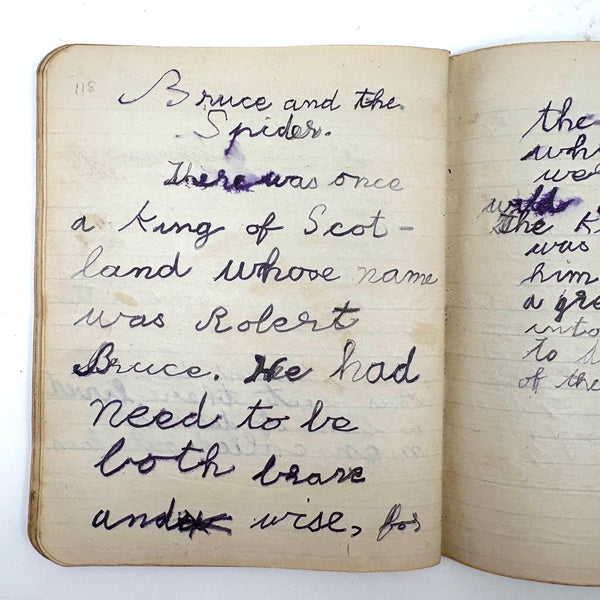 118
Bruce and the
Spider.
There was once
a King of Scot-
land whose name
was Robert
Bruce. He had
need to be
both brave
and wise, for
the
was
him
a gre
into
to d
of the